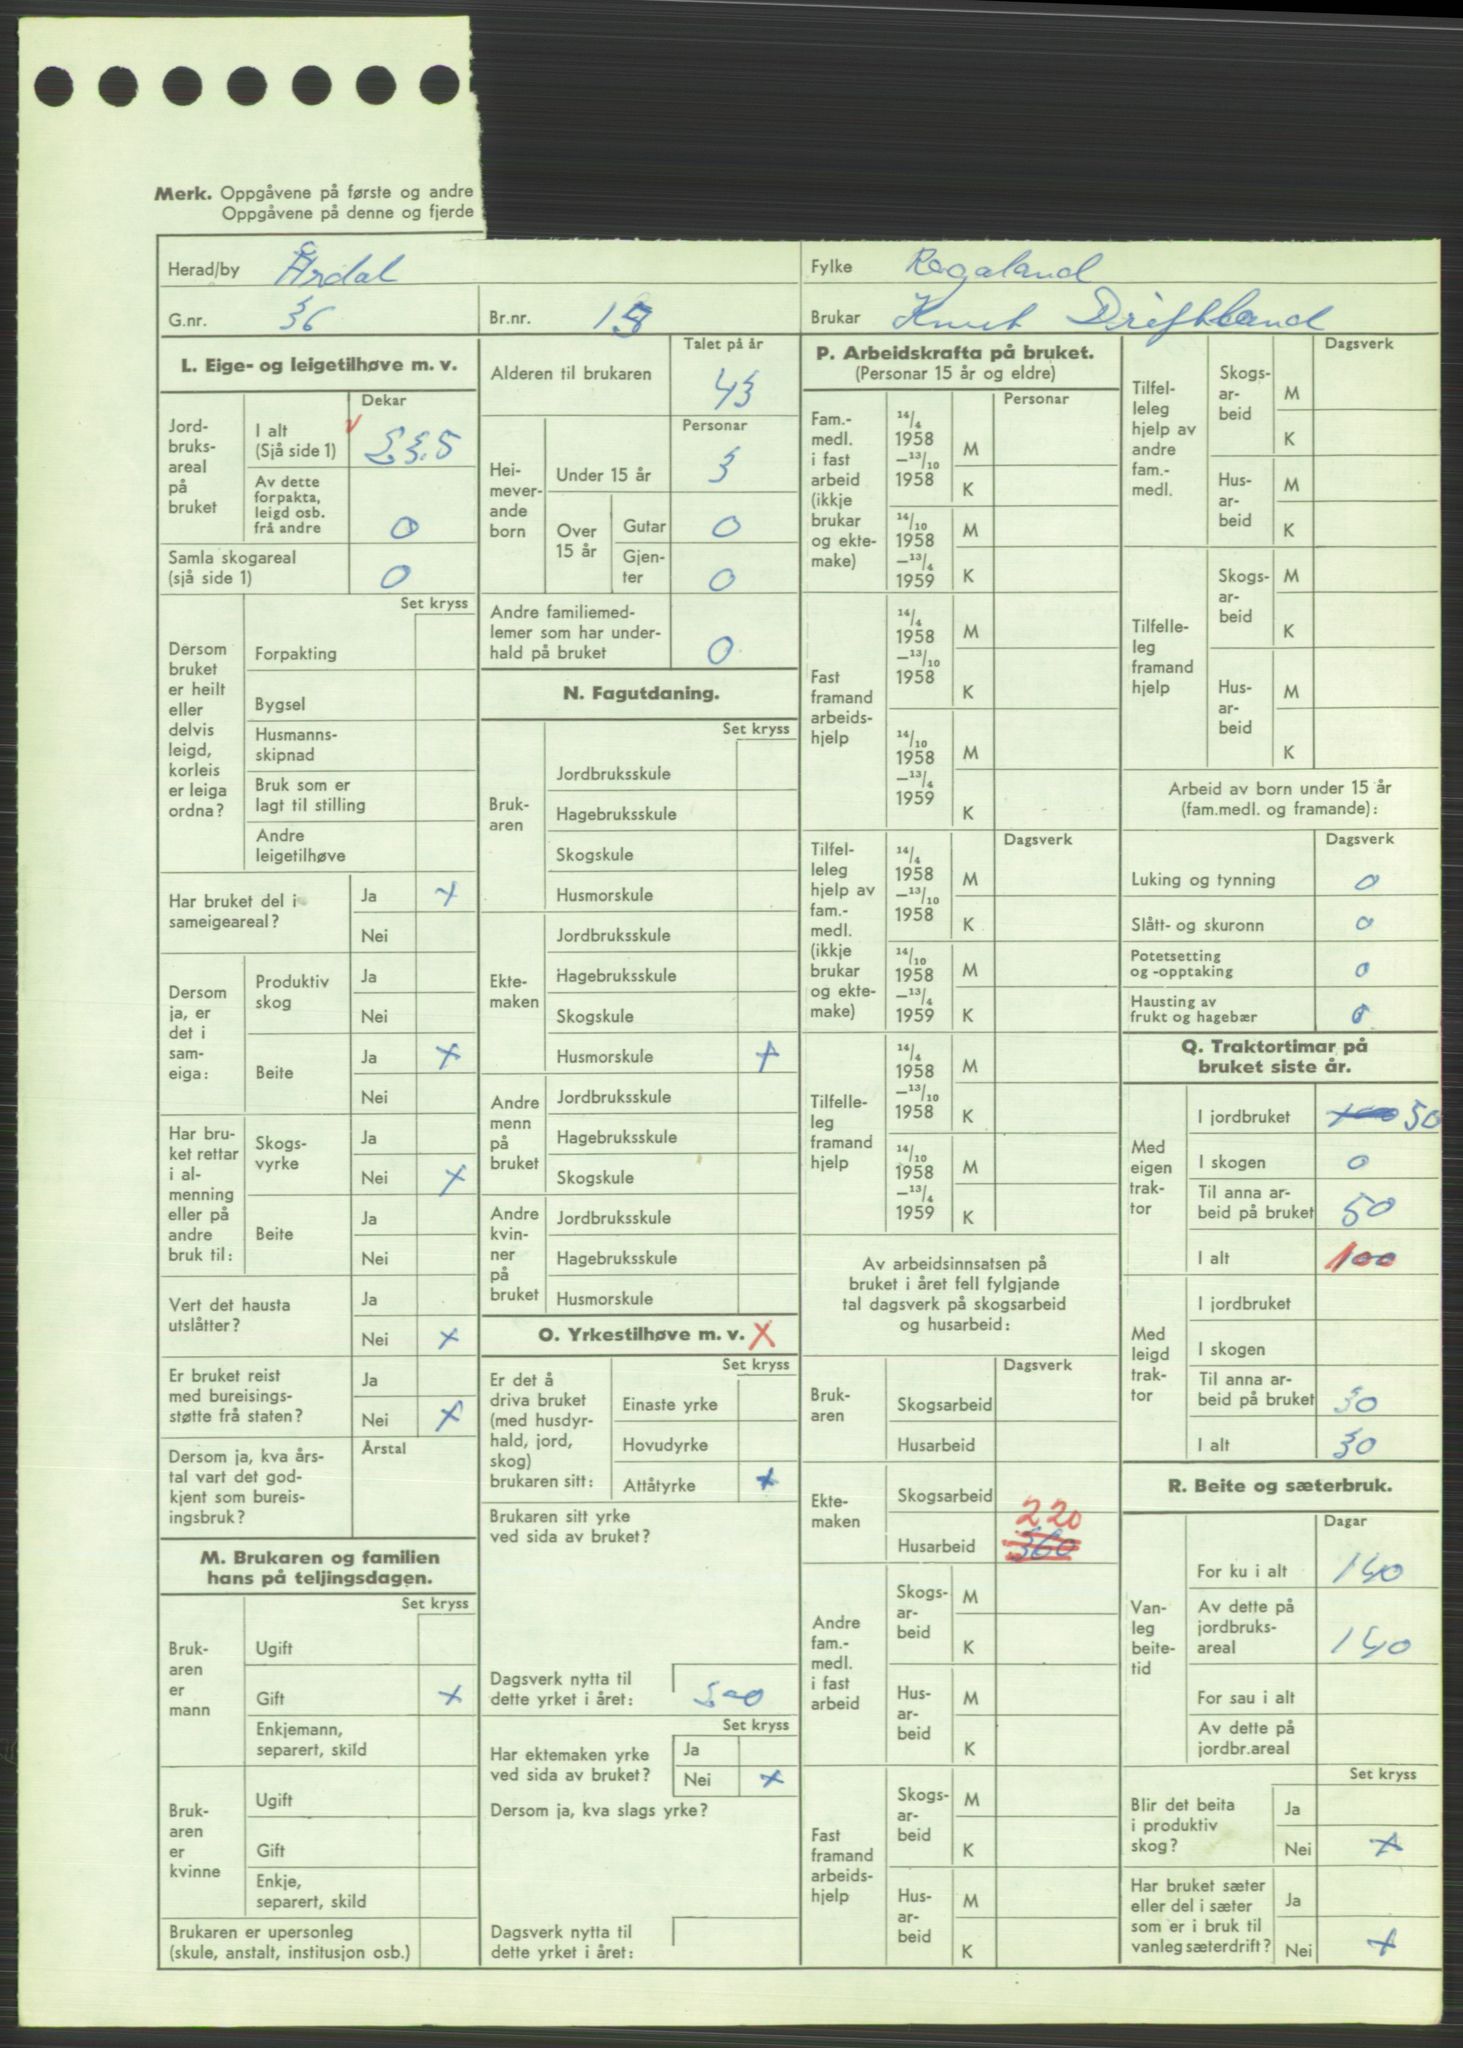 Merk. Oppgåvene på første og andre
Oppgåvene på denne og fjerde
Herad/by Årdal
Fylke Rogaland
G.nr. 36
Br.nr.
Brukar Knut
L. Eige- og leigetilhøve m. v.
Dekar
Jord-
bruks-
areal
på
bruket
I alt
(Sjå side 1)
23.5
Av dette
forpakta,
leigd osb.
frå andre
0
Samla skogareal
(sjå side 1)
0
Set kryss
Dersom
bruket
er heilt
eller
delvis
leigd,
korleis
er leiga
ordna?
Forpakting
Bygsel
Husmanns-
skipnad
Bruk som er
lagt til stilling
Andre
leigetilhøve
Har bruket del i
sameigeareal?
Ja x
Nei
Dersom
ja, er
det i
sam-
eiga:
Produktiv
skog
Ja
Nei
Beite
Ja x
Nei
Har bru-
ket rettar
i al-
menning
eller på
andre
bruk til:
Skogs-
vyrke
Ja
Nei x
Beite
Ja
Nei
Vert det hausta
utslåtter?
Ja
Nei x
Er bruket reist
med bureisings-
støtte frå staten?
Ja
Nei x
Dersom ja, kva års-
tal vart det god-
kjent som bureis-
ingsbruk?
Årstal
M. Brukaren og familien
hans på teljingsdagen.
Set kryss
Bruk-
aren
er
mann
Ugift
Gift x
Enkjemann,
separert, skild
Bruk-
aren
er
kvinne
Ugift
Gift
Enkje,
separert, skild
Brukaren er upersonleg
(skule, anstalt, institusjon osb.)
Talet på år
Alderen til brukaren
43
Personar
Hei-
mever-
ande
born
Under 15 år
3
Over
15 år
Gutar
0
Gjen-
ter
0
Andre familiemed-
lemer som har under-
hald på bruket
0
N. Fagutdaning.
Set kryss
Bruk-
aren
Jordbruksskule
Hagebruksskule
Skogskule
Husmorskule
Ekte-
maken
Jordbruksskule
Hagebruksskule
Skogskule
Husmorskule x
Andre
menn
på
bruket
Jordbruksskule
Hagebruksskule
Skogskule
Andre
kvin-
ner
på
bruket
Jordbruksskule
Hagebruksskule
Husmorskule
O. Yrkestilhøve m. v. X
Set kryss
Er det å
driva bruket
(med husdyr-
hald, jord,
skog)
brukaren sitt:
Einaste yrke
Hovudyrke
Attåtyrke x
Brukaren sitt yrke
ved sida av bruket?
Dagsverk nytta til
dette yrket i året:
Set kryss
Har ektemaken yrke
ved sida av bruket?
Ja
Nei x
Dersom ja, kva slags yrke?
Dagsverk nytta til
dette yrket i året:
P. Arbeidskrafta på bruket.
(Personar 15 år og eldre)
Personar
Fam.-
medl.
i fast
arbeid
(ikkje
brukar
og ekte-
make)
14/4
1958
—13/10
1958
M
K
14/10
1958
—13/4
1959
M
K
Fast
framand
arbeids-
hjelp
14/4
1958
—13/10
1958
M
K
14/10
1958
—13/4
1959
M
K
Dagsverk
Tilfel-
leleg
hjelp av
fam.-
medl.
(ikkje
brukar
og ekte-
make)
14/4
1958
—13/10
1958
M
K
14/10
1958
—13/4
1959
M
K
Tilfelle-
leg
framand
hjelp
14/4
1958
—13/10
1958
M
K
14/10
1958
—13/4
1959
M
K
Av arbeidsinnsatsen på
bruket i året fell fylgjande
tal dagsverk på skogsarbeid
og husarbeid:
Dagsverk
Bruk-
aren
Skogsarbeid
Husarbeid
Ekte-
maken
Skogsarbeid
220
Husarbeid
360
Andre
fam.-
medl.
i fast
arbeid
Skogs-
ar-
beid
M
K
Hus-
ar-
beid
M
K
Fast
framand
arbeids-
hjelp
Skogs-
ar-
beid
M
K
Hus-
ar-
beid
M
K
Dagsverk
Tilfel-
leleg
hjelp av
andre
fam.-
medl.
Skogs-
ar-
beid
M
K
Hus-
ar-
beid
M
K
Tilfelle-
leg
framand
hjelp
Skogs-
ar-
beid
M
K
Hus-
ar-
beid
M
K
Arbeid av born under 15 år
(fam.medl. og framande):
Dagsverk
Luking og tynning 0
Slått- og skuronn 0
Potetsetting
og -opptaking 0
Hausting av
frukt og hagebær 0
Q. Traktortimar på
bruket siste år.
Med
eigen
trak-
tor
I jordbruket 100 50
I skogen 0
Til anna ar-
beid på bruket 50
I alt 100
Med
leigd
trak-
tor
I jordbruket
I skogen
Til anna ar-
beid på bruket 30
I alt 30
R. Beite og sæterbruk.
Dagar
Van-
leg
beite-
tid
For ku i alt 140
Av dette på
jordbruks-
areal 140
For sau i alt
Av dette på
jordbr.areal
Set kryss
Blir det beita
i produktiv
skog?
Ja
Nei x
Har bruket sæter
eller del i sæter
som er i bruk til
vanleg sæterdrift?
Ja
Nei x